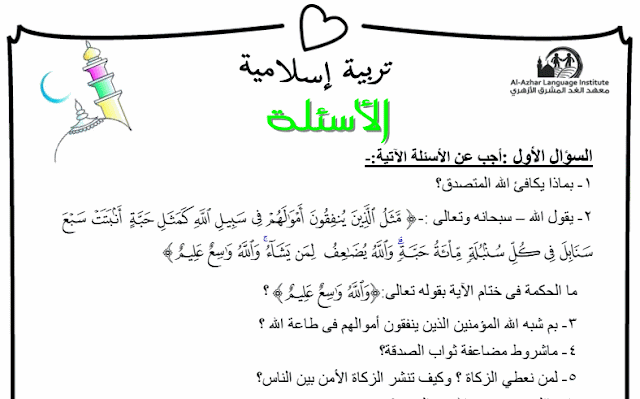 تربية إسلامية
Al-Azhar Language Institute
معهد الغد المشرق الأزهري
الأسئلة
السؤال الأول :أجب عن الأسئلة الآتية:-
١- بماذا يكافئ الله المتصدق؟
٢- يقول الله – سبحانه وتعالى :-﴿ مَّثَلُ ٱلَّذِينَ يُنفِقُونَ أَمۡوَٰلَهُمۡ فِي سَبِيلِ ٱللَّهِ كَمَثَلِ حَبَّةٍ أَنۢبَتَتۡ سَبۡعَ
سَنَابِلَ فِي كُلِّ سُنۢبُلَةٖ مِّاْئَةُ حَبَّةٖۗ وَٱللَّهُ يُضَٰعِفُ لِمَن يَشَآءُۚ وَٱللَّهُ وَٰسِعٌ عَلِيمٌ ﴾
ما الحكمة فى ختام الآية بقوله تعالى:﴿وَٱللَّهُ وَٰسِعٌ عَلِيمٌ ﴾ ؟
٣- بم شبه الله المؤمنين الذين ينفقون أموالهم فى طاعة الله ؟
٤- ماشروط مضاعفة ثواب الصدقة؟
٥- لمن نعطي الزكاة ؟ وكيف تنشر الزكاة الأمن بين الناس؟